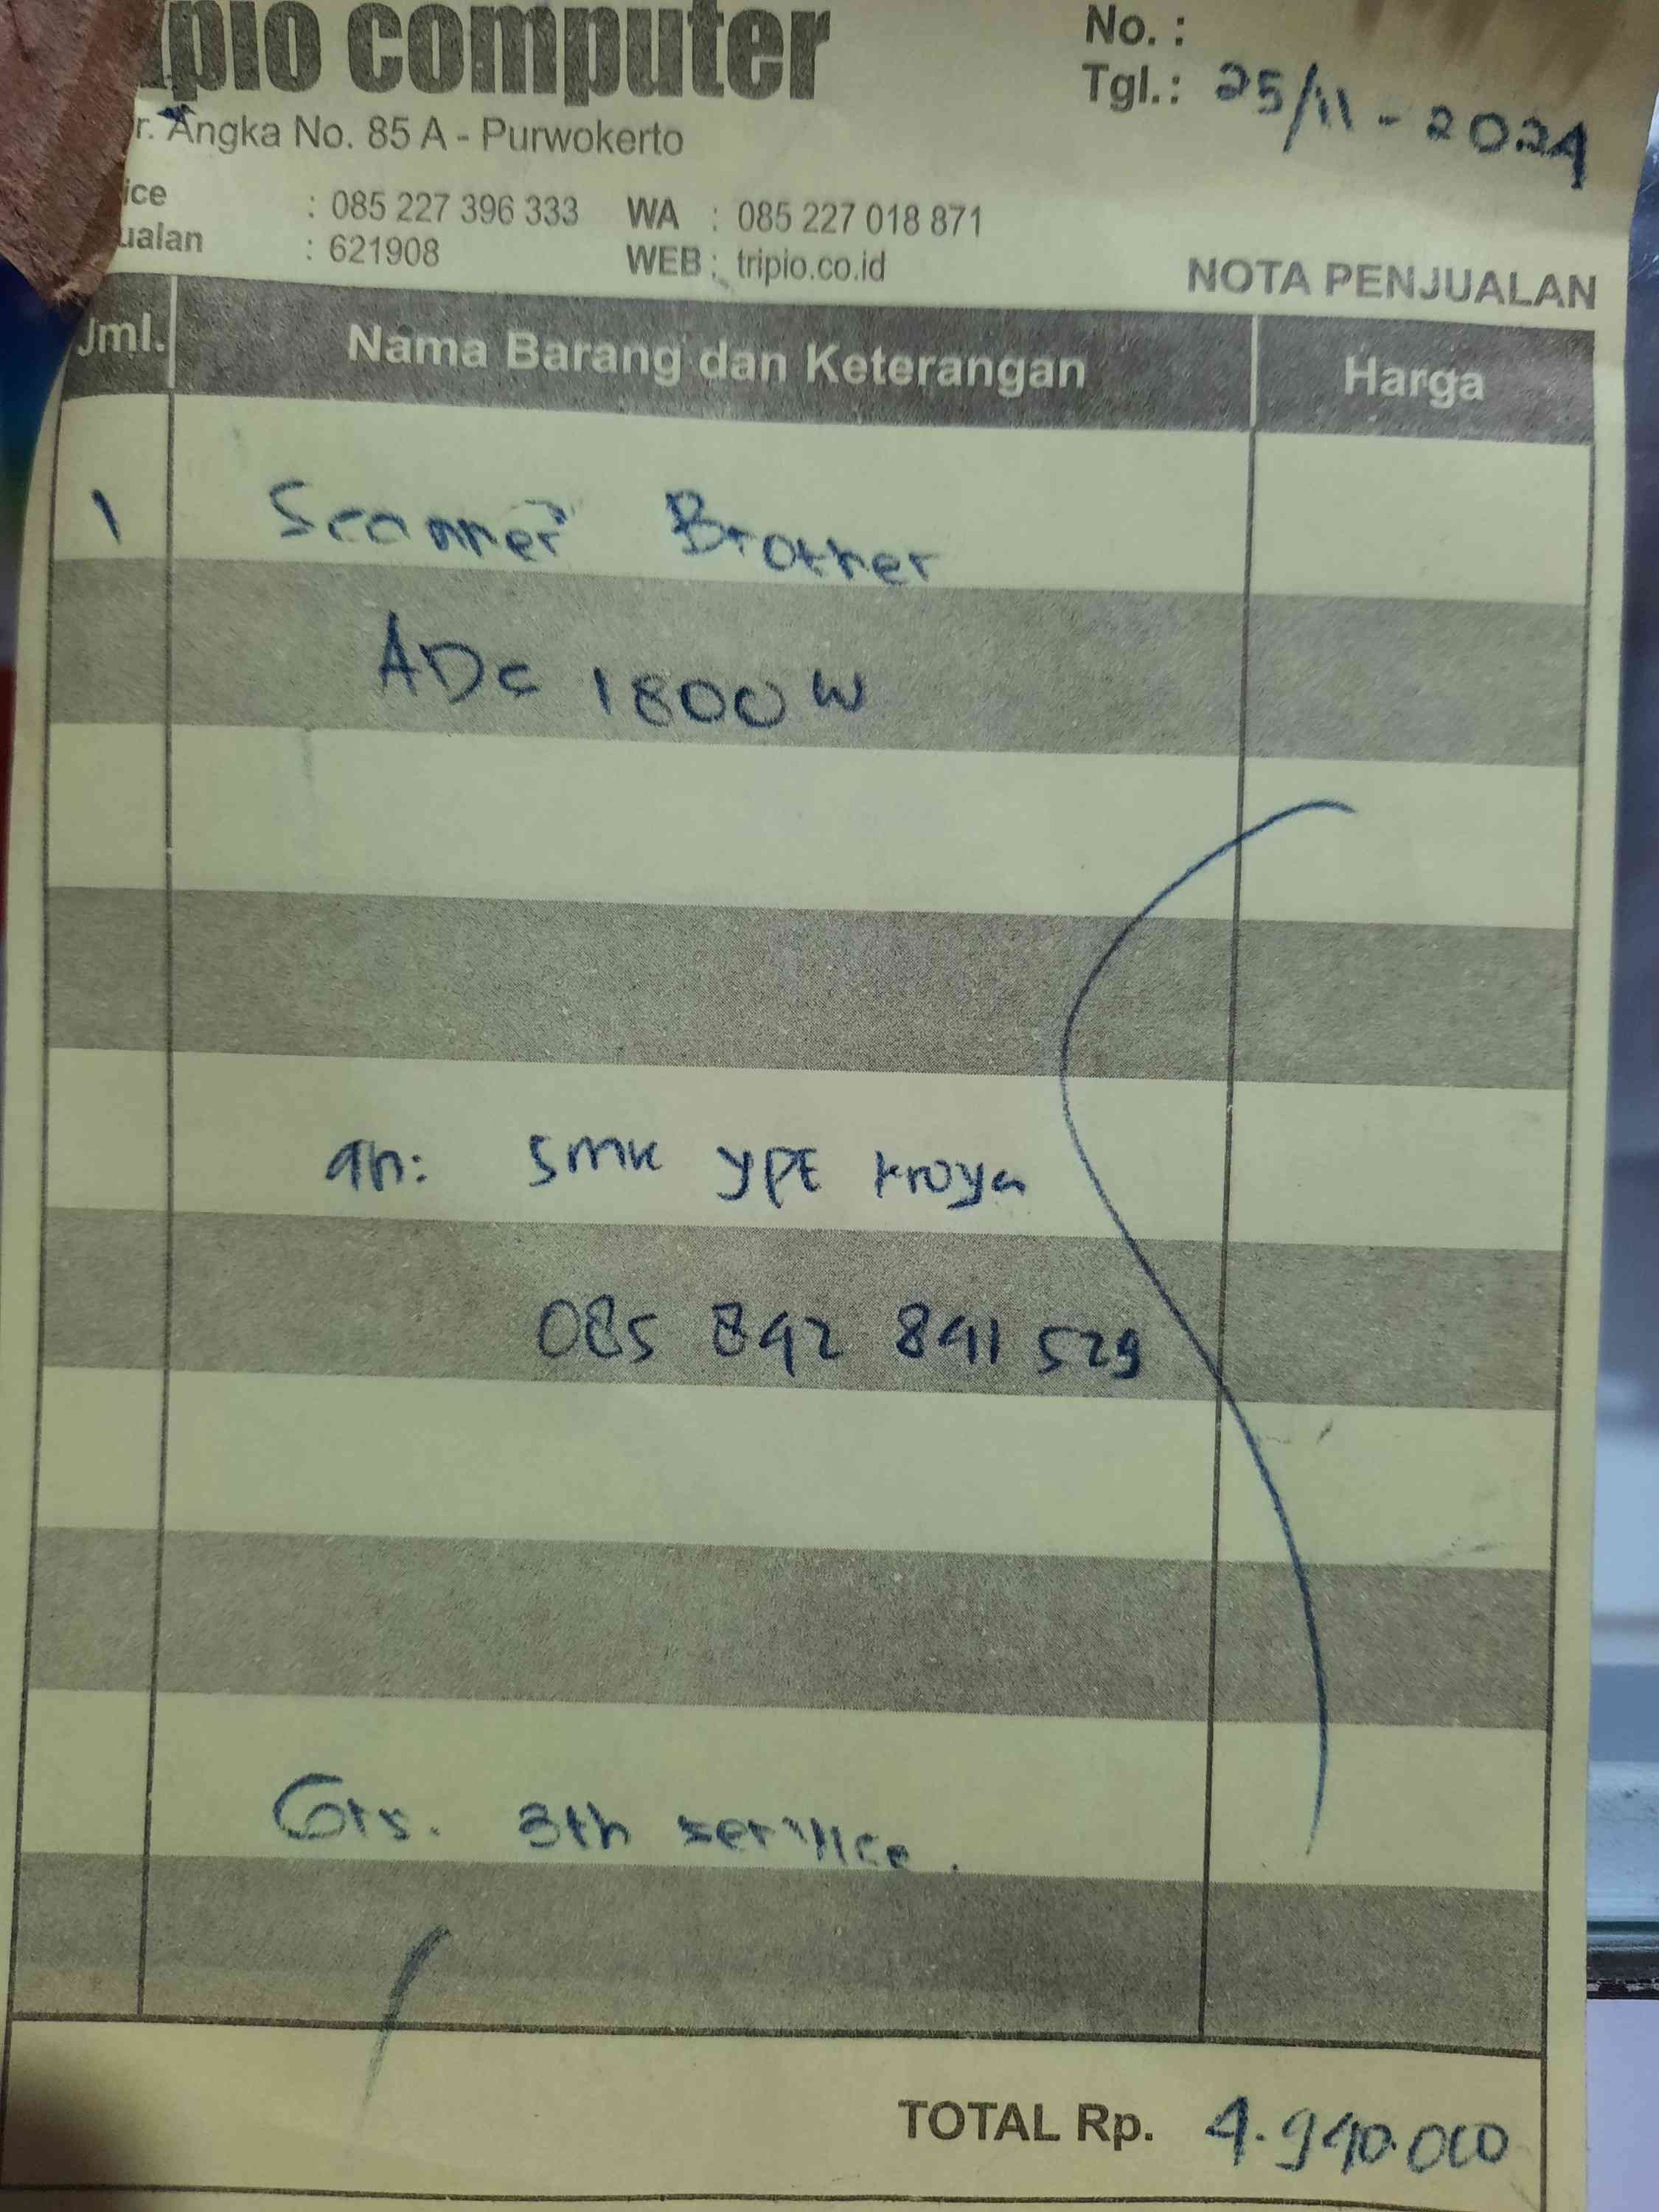 pio computer
No. :
Tgl. : 25/11 - 2024
r. Angka No. 85 A - Purwokerto
ice : 085 227 396 333 WA : 085 227 018 871
ualan : 621908 WEB : tripio.co.id
NOTA PENJUALAN
Jml. Nama Barang dan Keterangan Harga
1 Scanner Brother
ADC 1800 W
an: SMK YPE Kroya
085 842 841 529
Grs. 3th service.
TOTAL Rp. 4.940.000